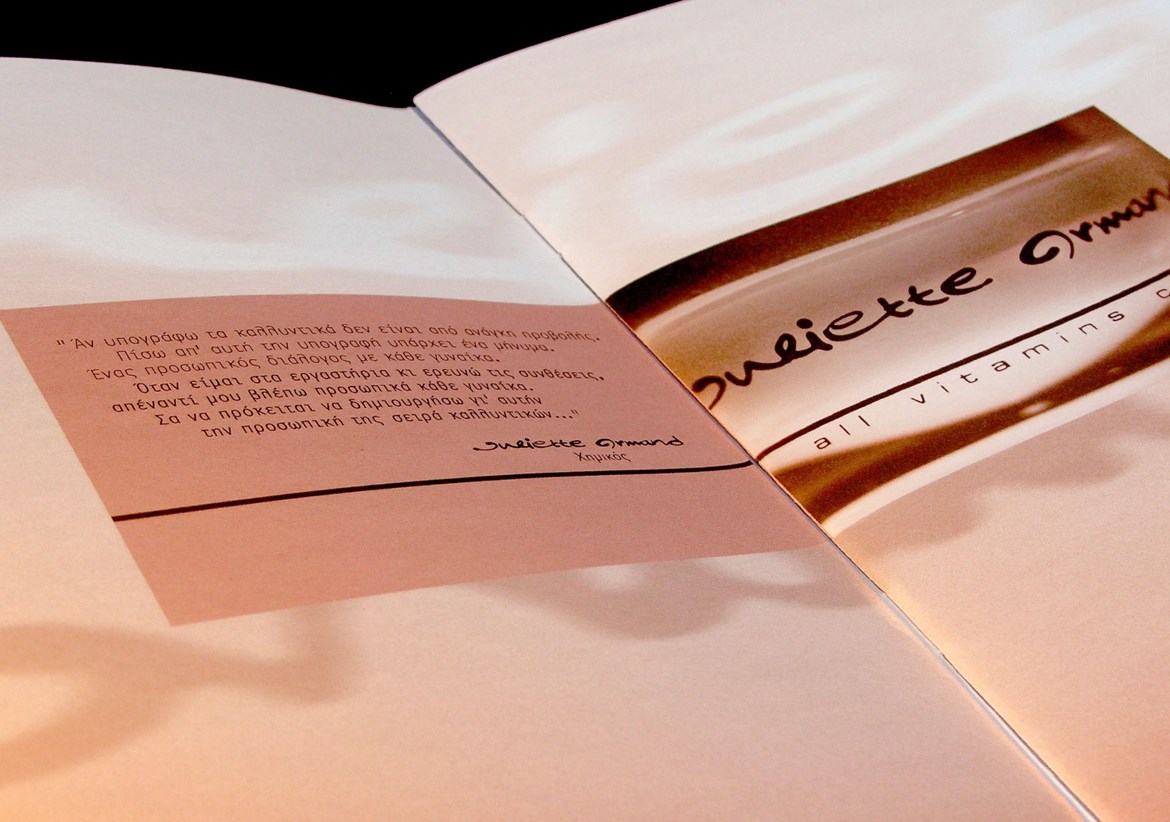 "Άν υπογράφω τα καλλυντικά δεν είναι από ανάγκη προβολής.
Πίσω απ' αυτή την υπογραφή υπάρχει ένα μήνυμα.
Ένας προσωπικός διάλογος με κάθε γυναίκα.
Όταν είμαι στα εργαστήρια κι ερευνώ τις συνθέσεις,
απέναντί μου βλέπω προσωπικά κάθε γυναίκα.
Σα να πρόκειται να δημιουργήσω γι' αυτήν
την προσωπική της σειρά καλλυντικών..."
Juliette Armand
Χημικός
Juliette Arman
all vitamins c